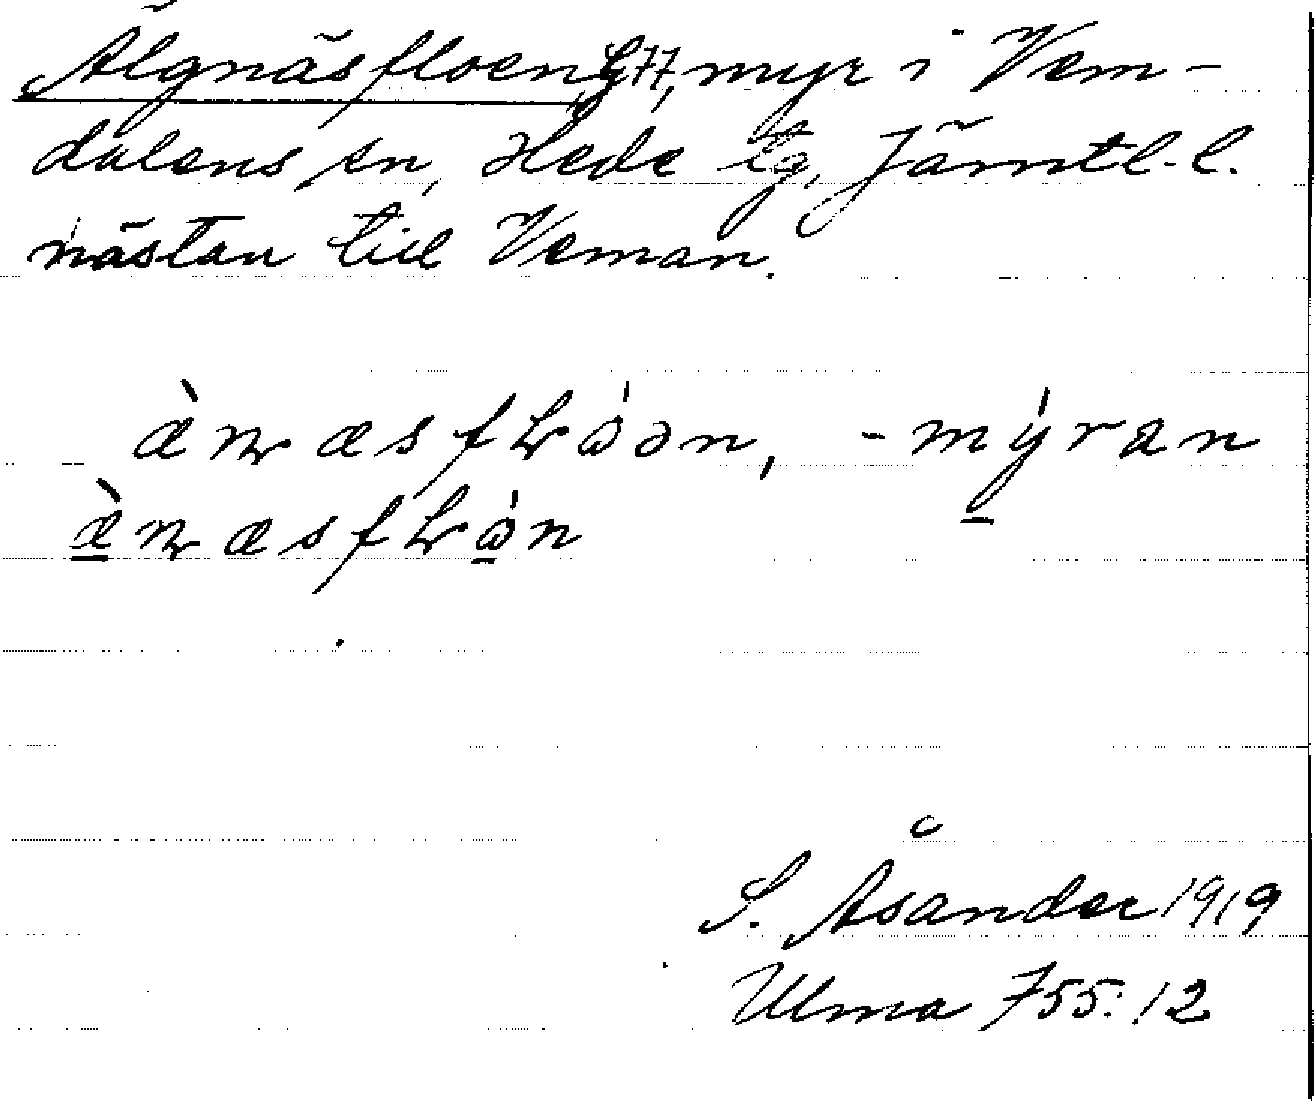 Älgnäsfloen, G77, myr i Vem-
dalens sn, Hede tg, Jämtl. l.
nästan till Veman.
æ̀ŋæsfɫɷ́ən, -mýran
æ̀ŋæsfɫɷ́n
S. Åsander 1919
Ulma 755:12